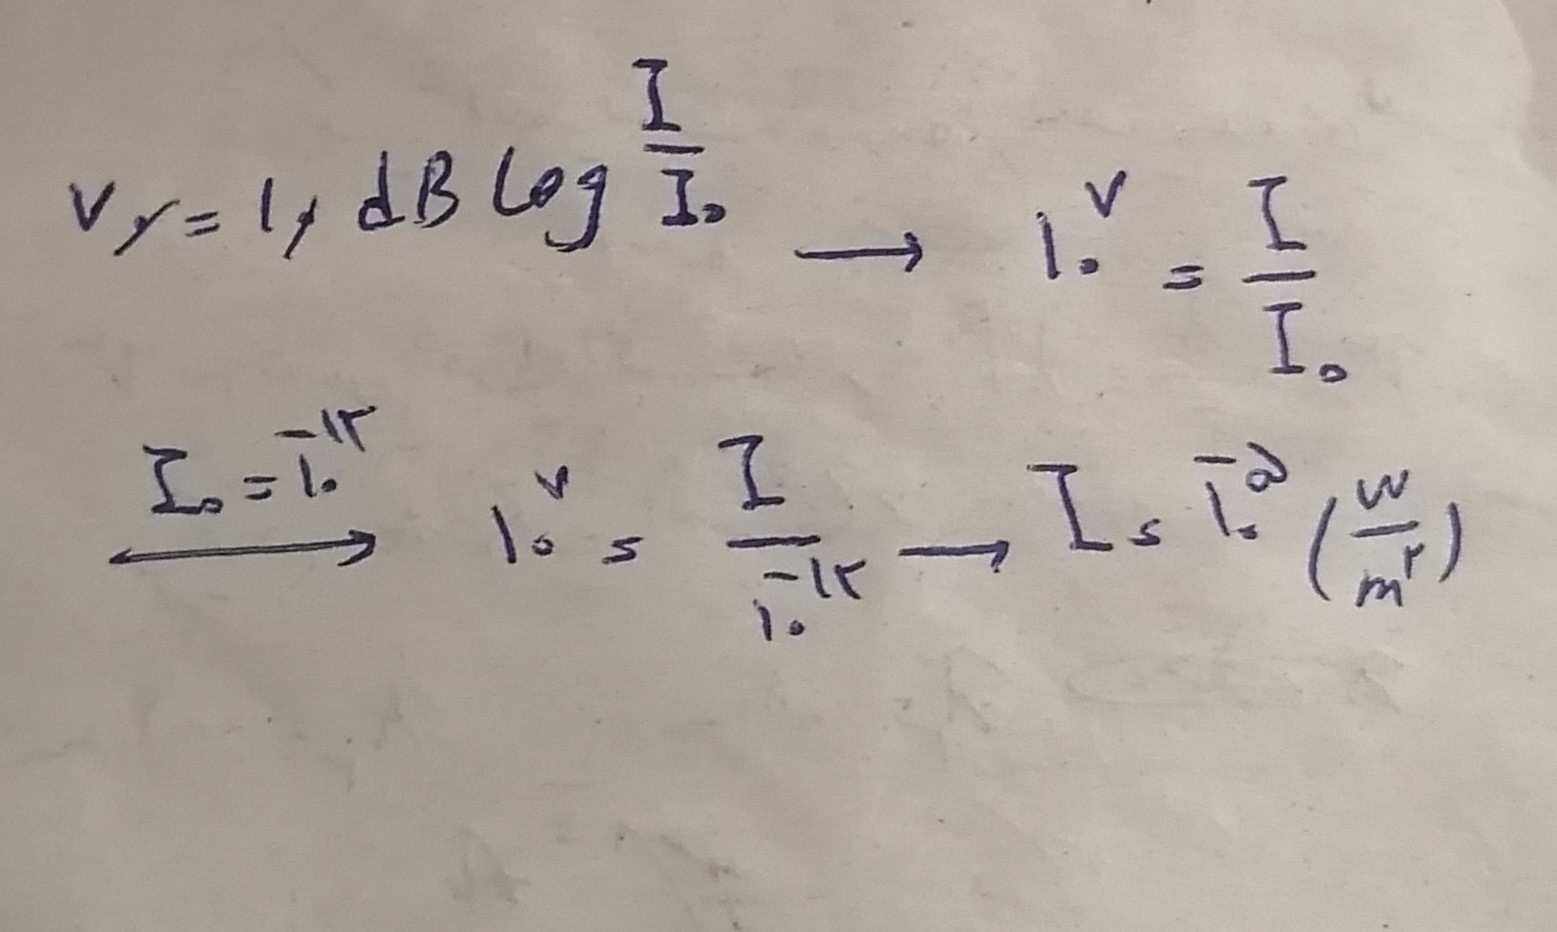 ۷۰ = ۱۰ dB log I/I₀ → ۱۰^۷ = I/I₀
I₀ = ۱۰^-۱۲ → ۱۰^۷ = I/۱۰^-۱۲ → I = ۱۰^-۵ (W/m^۲)